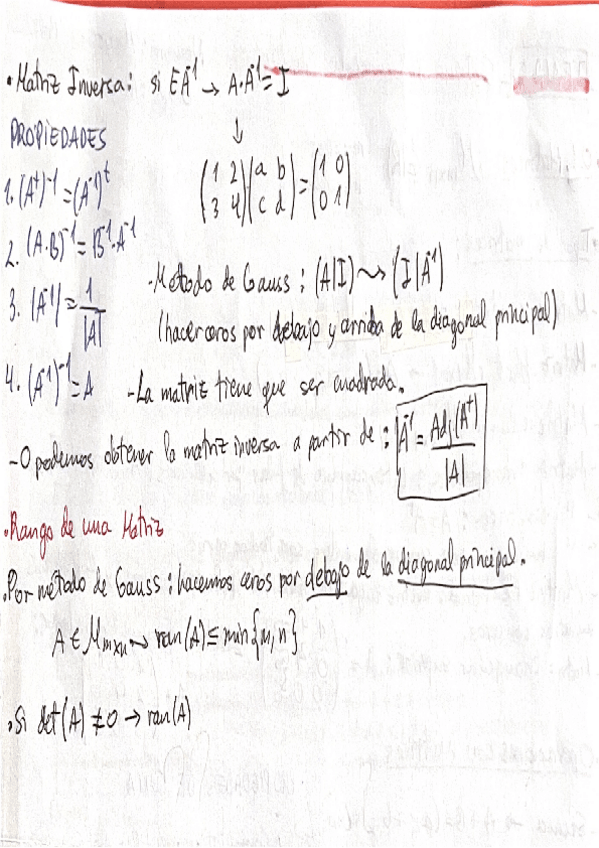 • Matriz Inversa: si ∃A⁻¹ → A·A⁻¹ = I
↓
PROPIEDADES
(1 2; 3 4)(a b; c d) = (1 0; 0 1)
1. (Aᵗ)⁻¹ = (A⁻¹)ᵗ
2. (A·B)⁻¹ = B⁻¹·A⁻¹
3. |A⁻¹| = 1/|A|
4. (A⁻¹)⁻¹ = A
-Método de Gauss: (A|I) ⇝ (I|A⁻¹)
(hacer ceros por debajo y arriba de la diagonal principal)
-La matriz tiene que ser cuadrada.
-O podemos obtener la matriz inversa a partir de: A⁻¹ = Adj(Aᵗ)/|A|
•Rango de una Matriz
•Por método de Gauss: hacemos ceros por debajo de la diagonal principal.
A ∈ Mmxn ⇝ ran(A) ≤ min{m,n}
•Si det(A) ≠ 0 → ran(A)